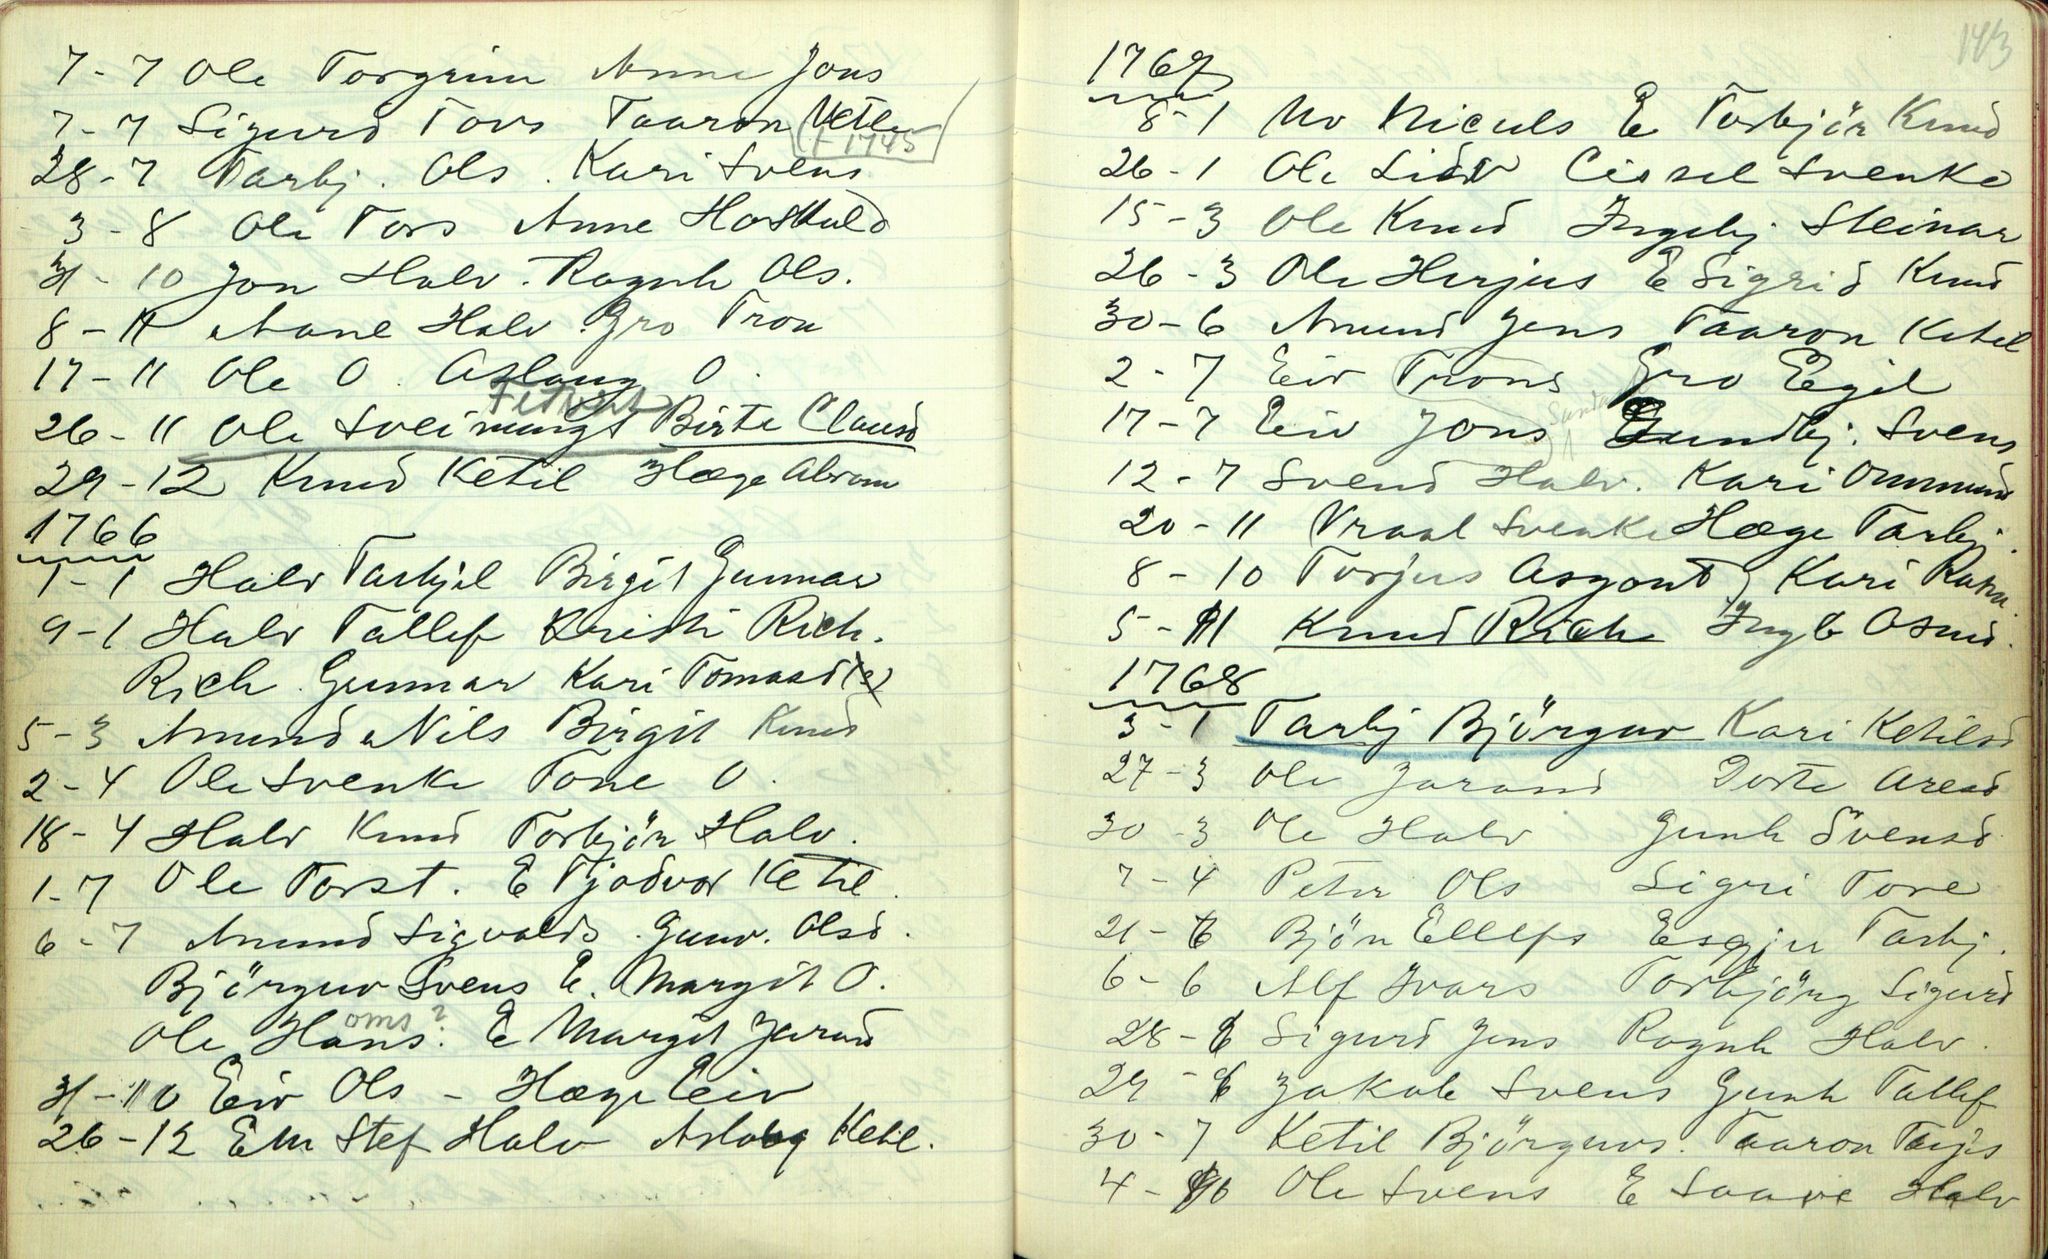 7-7 Ole Torgrim Anne Jons
7-7 Sigurd Tovs Taaron Vetle
(+ 1745
28-7 Tarbj. Ols. Kari Svens
3-8 Ole Tors Anne Hoskuld
31-10 Jon Halv. Ragnh Ols.
8-11 Aanel Halv. Gro Tron
17-11 Ole O. Aslaug O.
26-11 Ole Sveinungs Birte Clausd
29-12 Knud Ketil Hæge Abram
1766
1-1 Halv Tarkjel Birgit Gunnar
9-1 Halv Tallef Kristi Rich.
Rich. Gunnar Kari Tomasd
5-3 Amund Nils Birgit Knud
2-4 Ole Svenke Tone O.
18-4 Halv Knud Torbjör Halv.
1-7 Ole Torst. E Tjodvor Ketil.
6-7 Amund Sigvalds Gunv. Olsd.
Björguv Svens E. Margit O.
oms?
Ole Hans. E Margit Jarand
31-10 Eiv Ols - Hæge Eiv
26-12 Em Stef Halv Aslaug Ketil.
143
1767
8-1 Niculs E Torbjör Knud
26-1 Ole Cissel Svenke
15-3 Ole Knud Ingebj Steinar
26-3 Ole Herjus E Sigrid Knud
30-6 Amund Jens Taaron Ketil
2-7 Eiv Trons Gro Egil
17-7 Eiv Jons Gundbj. Svens
12-7 Svend Halv. Kari Ommund
20-11 Vraal Svenke Hæge Tarbj.
8-10 Torjus Asgont Kari
5-11 Knud Rich Ingb Osmd.
1768
3-1 Tarbj Björguv Kari Ketilsd
27-3 Ole Jarand Dorte Aresd
30-3 Ole Halv Gunh Svensd
7-4 Peter Ols Sigri Tore
21-6 Björn Ellefs Tarbj.
6-6 Alf Ivars Torbjörg Sigurd
28-6 Sigurd Jens Ragnh Halv.
29-6 Jakob Svens Gunh Tallef
30-7 Ketil Björguvs. Taaron Tarjs
4-10 Ole Svens E Saave Halv